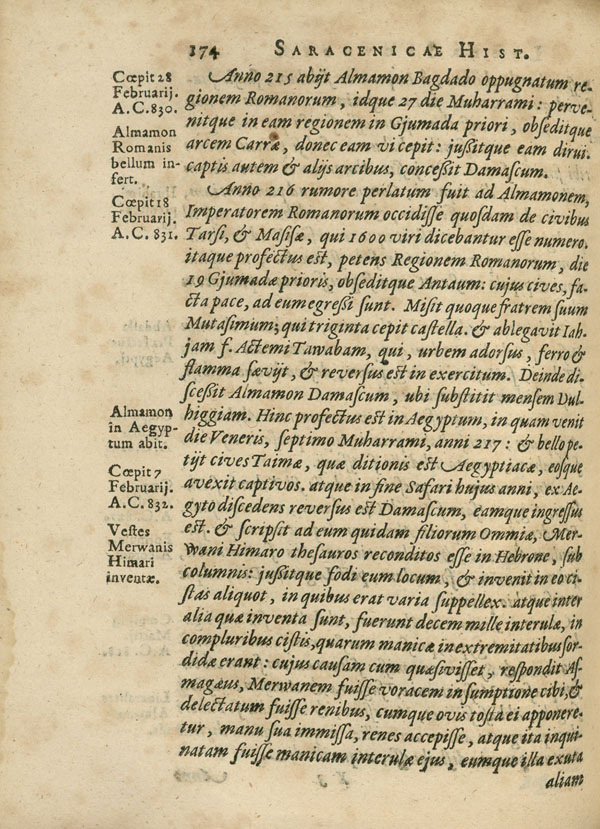 174 SARACENICAE HIST.
Cœpit 28
Februarij.
A. C. 830.
Almamon
Romanis
bellum in-
fert.
Cœpit 18
Februarij.
A. C. 831.
Almamon
in Aegyp-
tum abit.
Cœpit 7
Februarij.
A. C. 832.
Vestes
Merwanis
Himari
inventæ.
Anno 215 abijt Almamon Bagdado oppugnatum re-
gionem Romanorum, idque 27 die Muharrami: perve-
nitque in eam regionem in Gjumada priori, obseditque
arcem Carræ, donec eam vi cepit: jußitque eam dirui.
captis autem & alijs arcibus, conceßit Damascum.
Anno 216 rumore perlatum fuit ad Almamonem,
Imperatorem Romanorum occidisse quosdam de civibus
Tarsi, & Masisæ, qui 1600 viri dicebantur esse numero.
itaque profectus est, petens Regionem Romanorum, die
19 Gjumadæ prioris, obseditque Antaum: cujus cives, fa-
cta pace, ad eum egreßi sunt. Misit quoque fratrem suum
Mutasimum; qui triginta cepit castella. & ablegavit Iah-
jam f. Actemi Tawabam, qui, urbem adorsus, ferro &
flamma sævijt, & reversus est in exercitum. Deinde di-
sceßit Almamon Damascum, ubi substitit mensem Dul-
higgiam. Hinc profectus est in Aegyptum, in quam venit
die Veneris, septimo Muharrami, anni 217: & bello pe-
tijt cives Taimæ, quæ ditionis est Aegyptiacæ, eosque
avexit captivos. atque in fine Safari hujus anni, ex Ae-
gyto discedens reversus est Damascum, eamque ingressus
est. & scripsit ad eum quidam filiorum Ommiæ, Mer-
wani Himaro thesauros reconditos esse in Hebrone, sub
columnis: jußitque fodi eum locum, & invenit in eo ci-
stas aliquot, in quibus erat varia suppellex. atque inter
alia quæ inventa sunt, fuerunt decem mille interulæ, in
compluribus cistis, quarum manicæ in extremitatibus sor-
didæ erant: cujus causam cum quæsivisset, respondit As-
magæus, Merwanem fuisse voracem in sumptione cibi, &
delectatum fuisse renibus, cumque ovis tosta ei appone re-
tur, manu sua immissa, renes accepisse, atque ita inqui-
natam fuisse manicam interulæ ejus, eumque illa exuta
aliam